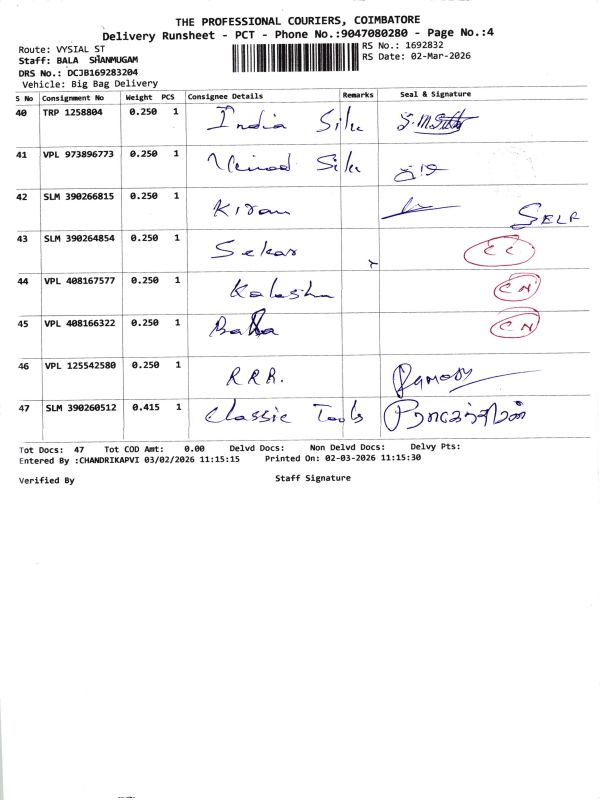 THE PROFESSIONAL COURIERS, COIMBATORE
Delivery Runsheet - PCT - Phone No.:9047080280 - Page No.:4
Route: VYSIAL ST
RS No.: 1692832
Staff: BALA SHANMUGAM
RS Date: 02-Mar-2026
DRS No.: DCJB169283204
Vehicle: Big Bag Delivery
S No Consignment No Weight PCS Consignee Details Remarks Seal & Signature
40 TRP 1258804 0.250 1 India Silk
41 VPL 973896773 0.250 1 Silk
42 SLM 390266815 0.250 1 Kiran SELF
43 SLM 390264854 0.250 1 Sekar
44 VPL 408167577 0.250 1 Kalasha CN
45 VPL 408166322 0.250 1 CN
46 VPL 125542580 0.250 1 R.R.R.
47 SLM 390260512 0.415 1 Classic Tools
Tot Docs: 47 Tot COD Amt: 0.00 Delvd Docs: Non Delvd Docs: Delvy Pts:
Entered By :CHANDRIKAPVI 03/02/2026 11:15:15 Printed On: 02-03-2026 11:15:30
Verified By Staff Signature